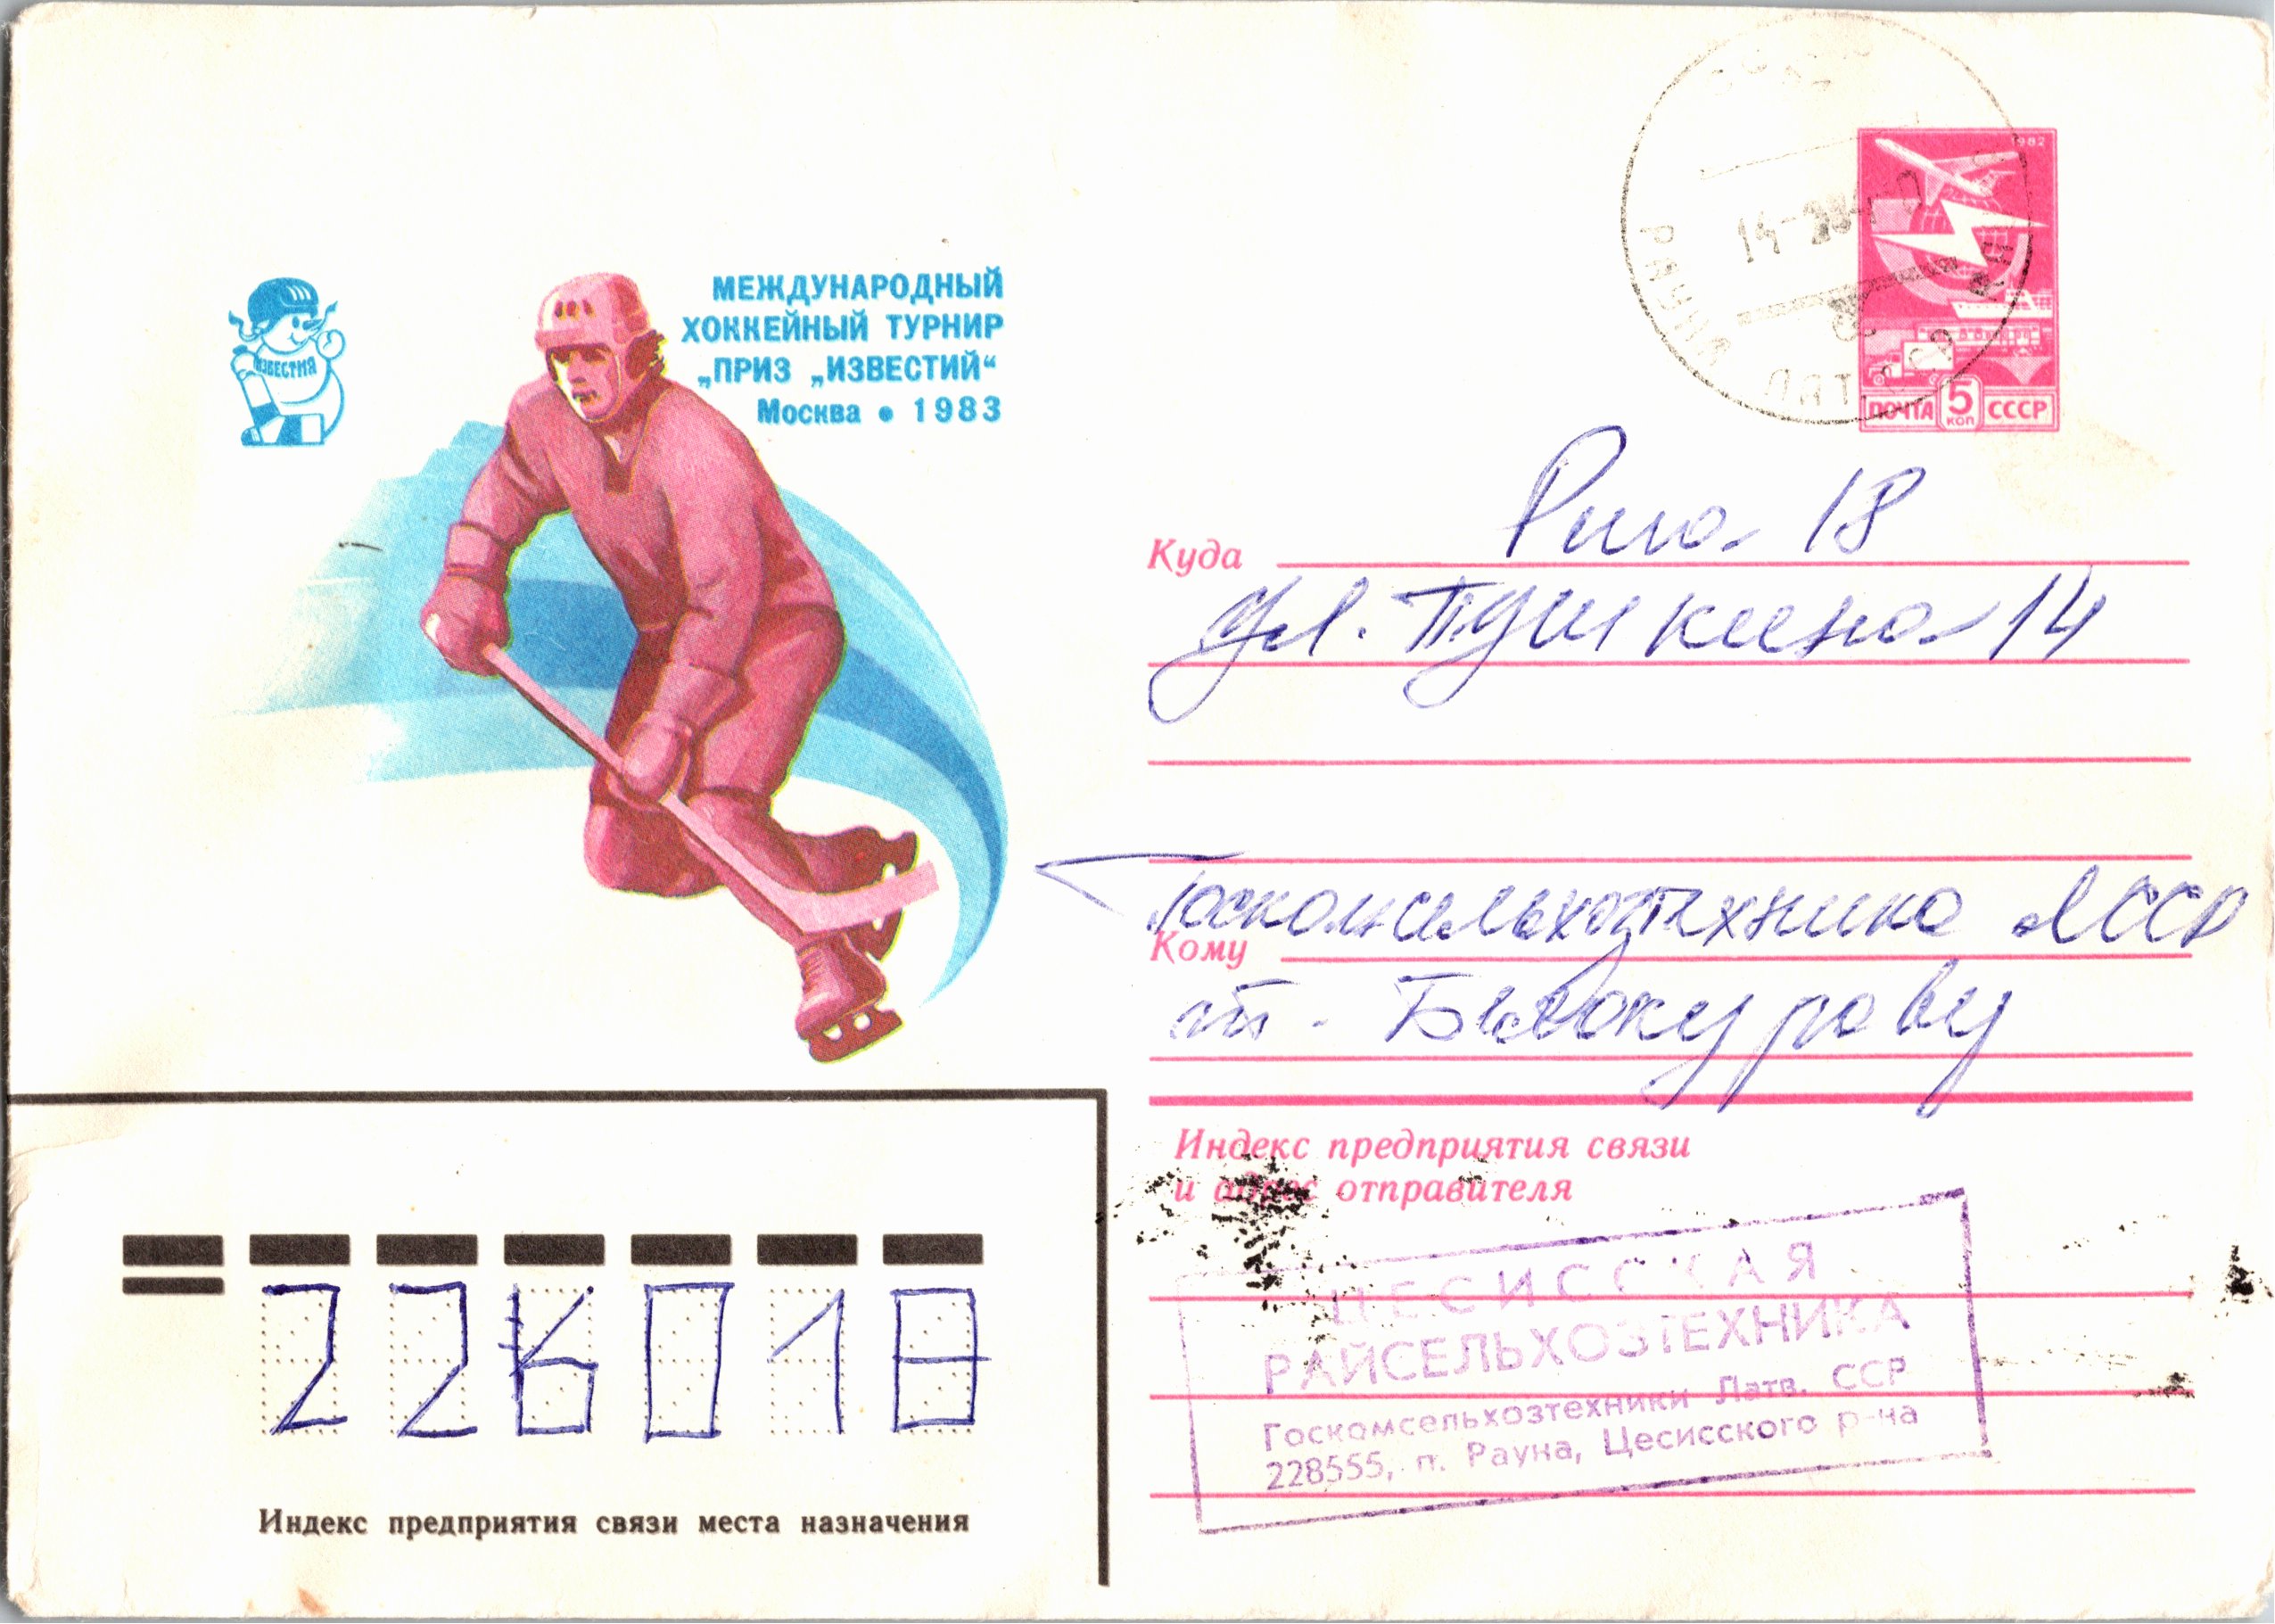 ИЗВЕСТИЯ
МЕЖДУНАРОДНЫЙ
ХОККЕЙНЫЙ ТУРНИР
„ПРИЗ „ИЗВЕСТИЙ“
Москва • 1983
1982
ПОЧТА 5 КОП СССР
РАУНА ЛАТ. ССР
Куда Рига 18
ул. Пушкина 14
Госкомсельхозтехника ЛССР
Кому
т. Белокурову
Индекс предприятия связи
и адрес отправителя
ЦЕСИССКАЯ
РАЙСЕЛЬХОЗТЕХНИКА
Госкомсельхозтехники Латв. ССР
228555, п. Рауна, Цесисского р-на
226018
Индекс предприятия связи места назначения